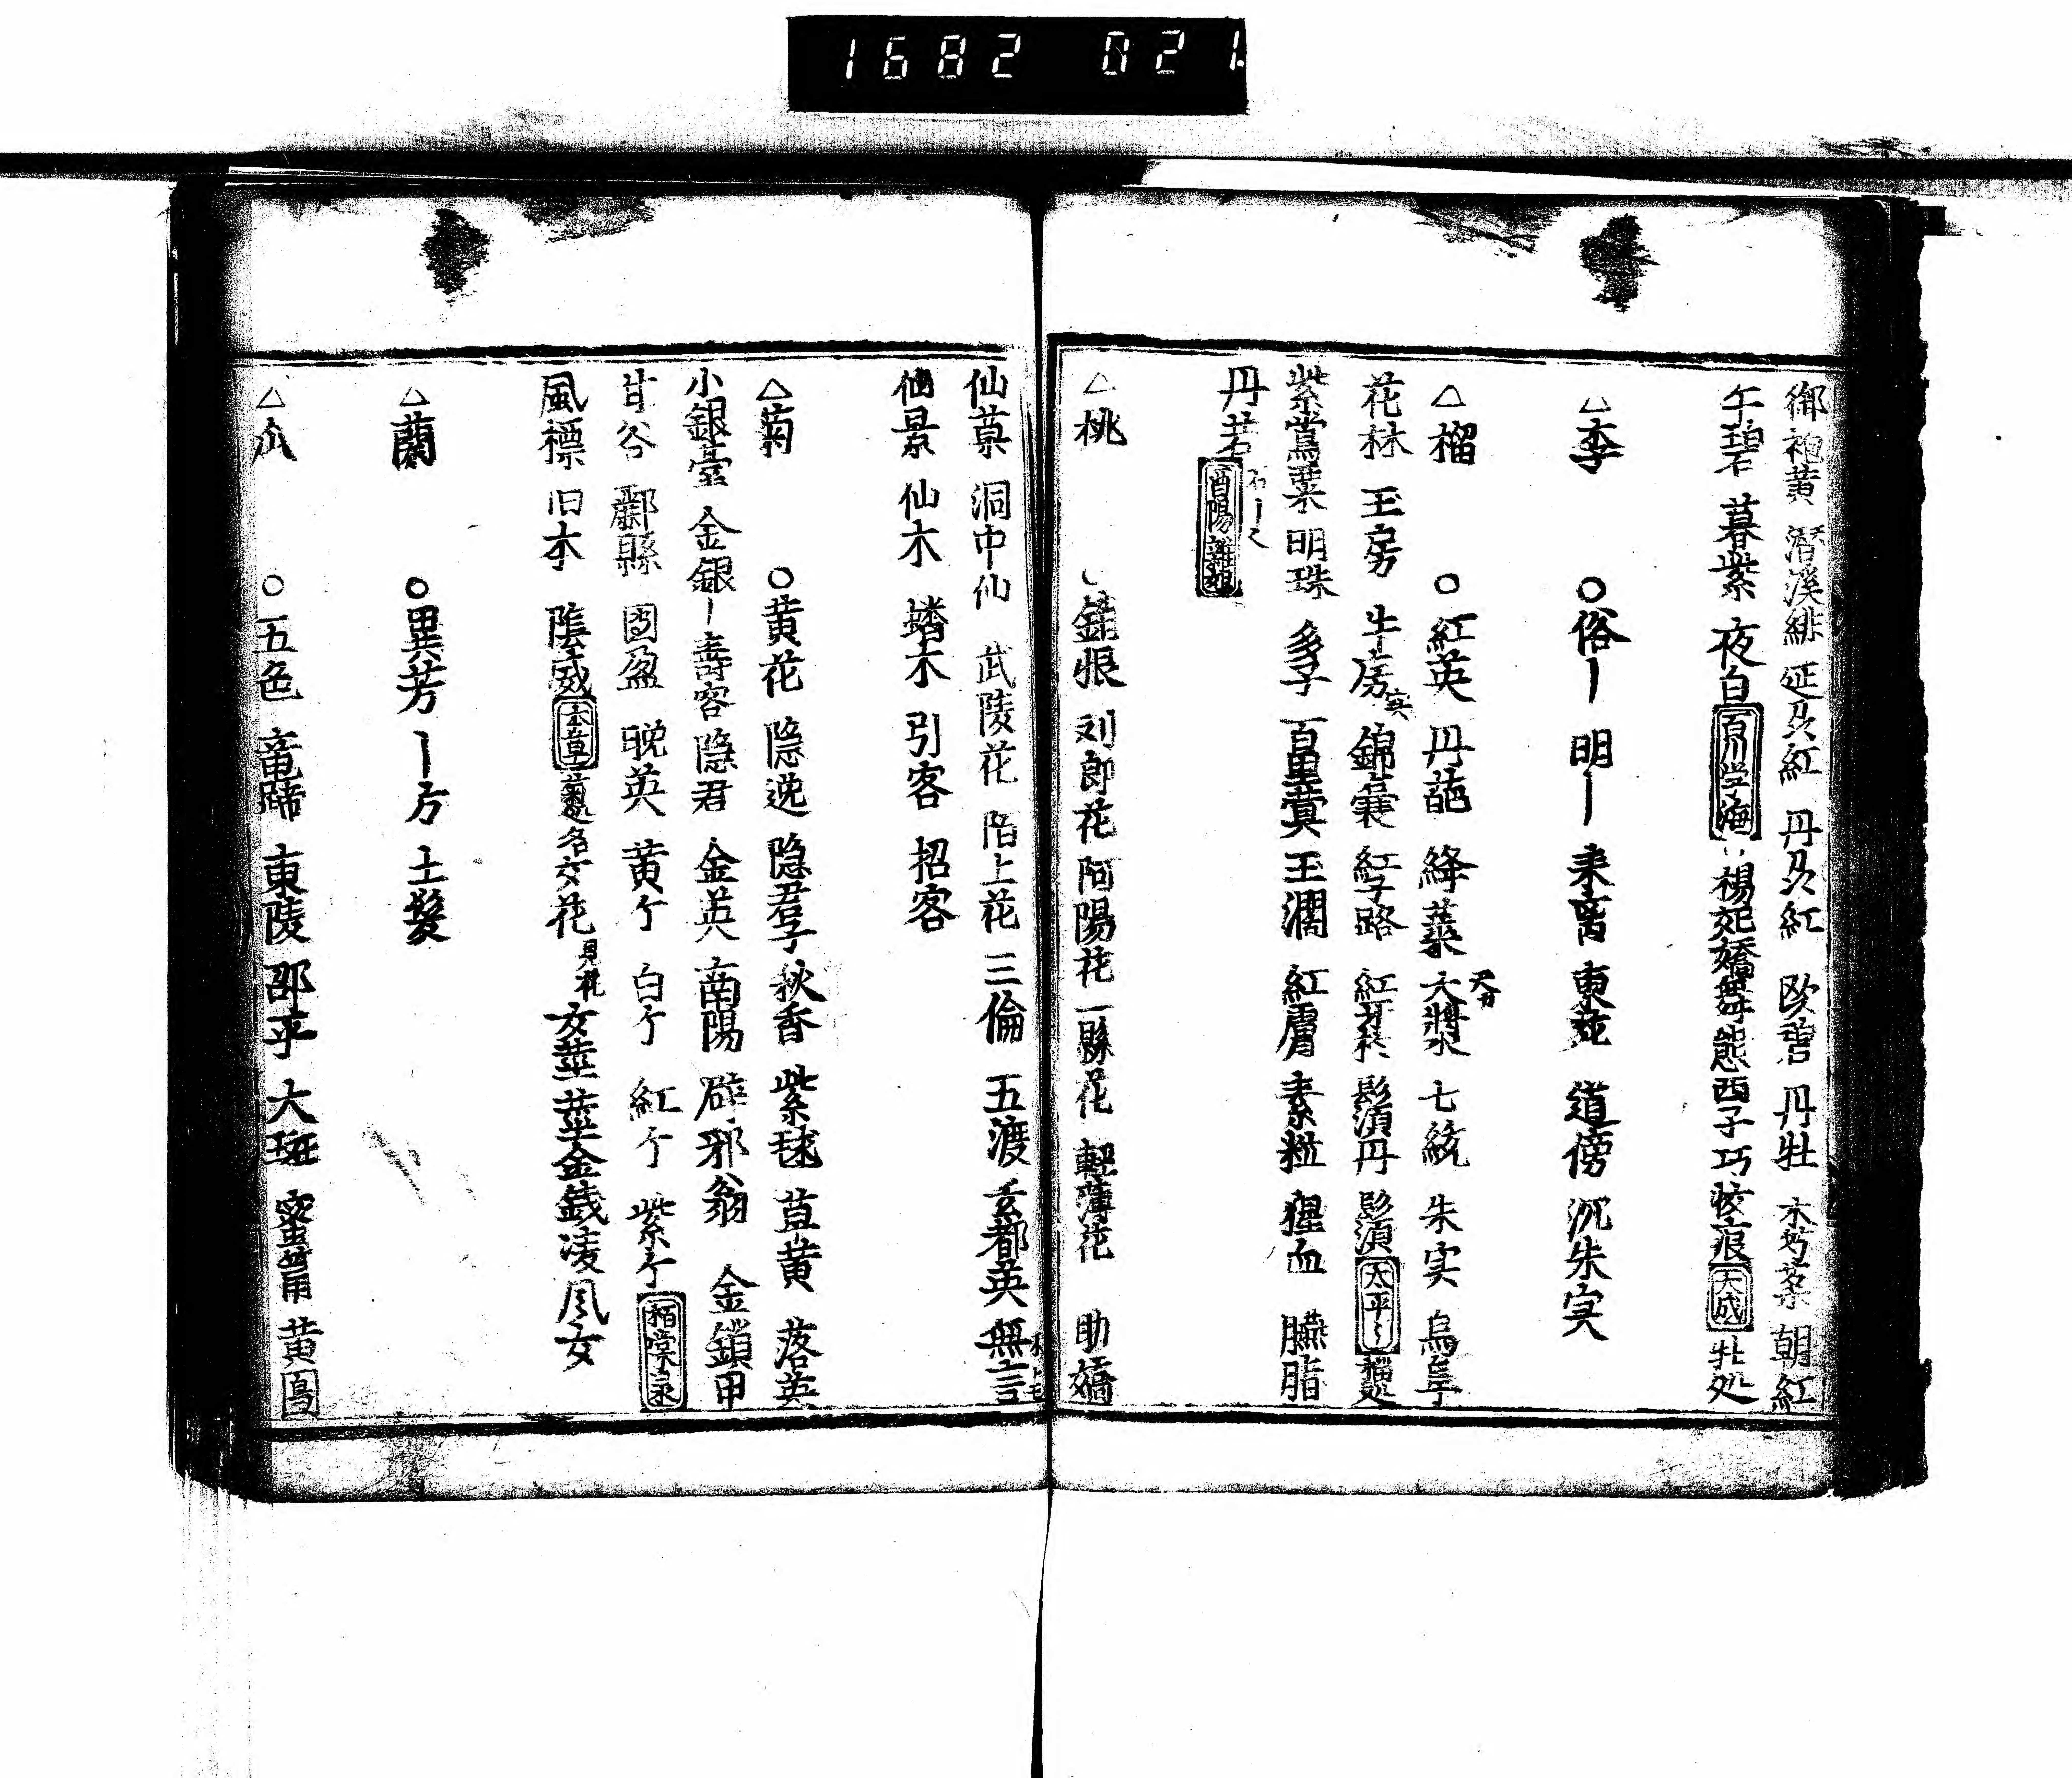 1682 021
御袍黄 潜溪緋 延及紅 丹及紅 欧碧 丹牡 木芍薬 朝紅
午碧 暮紫 夜白 百川学海 楊妃嬌舞態 西子巧 大成 牡処
△李 ○俗丨 明丨 来禽 東苑 道傍 沉朱実
△榴 ○紅英 丹葩 絳蕊 大漿 七絃 朱実 烏亭
花林 玉房 牛房 実 錦嚢 紅子路 髭須丹 髭須 太平
紫鴬粟 明珠 多子 百里冀 玉瀾 紅膚 素粒 猩血 臙脂
丹若 酉陽雑俎
△桃 銷恨 刘郎花 阿陽花 一縣花 軽薄花 助嬌
仙菓 洞中仙 武陵花 陌上花 三倫 五渡 玄都英 無言
仙景 仙木 蟠木 引客 招客
△菊 ○黄花 隠逸 隠君子 秋香 紫毬 苴黄 落英
小銀臺 金銀丨 壽容 隠君 金英 南陽 辟邪翁 金鎖甲
甘谷 酈縣 囿盈 晩英 黄亇 白亇 紅亇 紫亇
風標 旧本 陰威 本草 名女花 女莖 莖金銭 凌風女
△蘭 ○異芳 丨方 土髪
△瓜 ○五色 竜蹄 東陵 邵平 大斑 蜜筩 黄